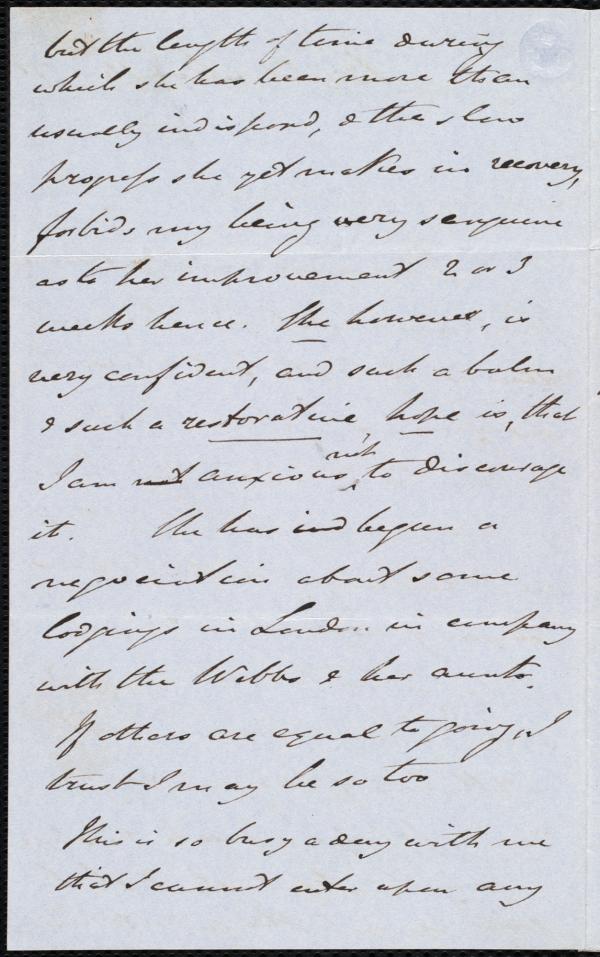 but the length of time during
which she has been more than
usually indisposed, & the slow
progress she yet makes in recovery,
forbids my being very sanguine
as to her improvement 2 or 3
weeks hence. She however, is
very confident, and such a balm
& such a restorative hope is, that
I am not anxious, not to discourage
it. She has ind begun a
negociation about some
lodgings in London in company
with the Webbs & her aunts.
If others are equal to going, I
trust I may be so too
This is so busy a day with me
that I cannot enter upon any